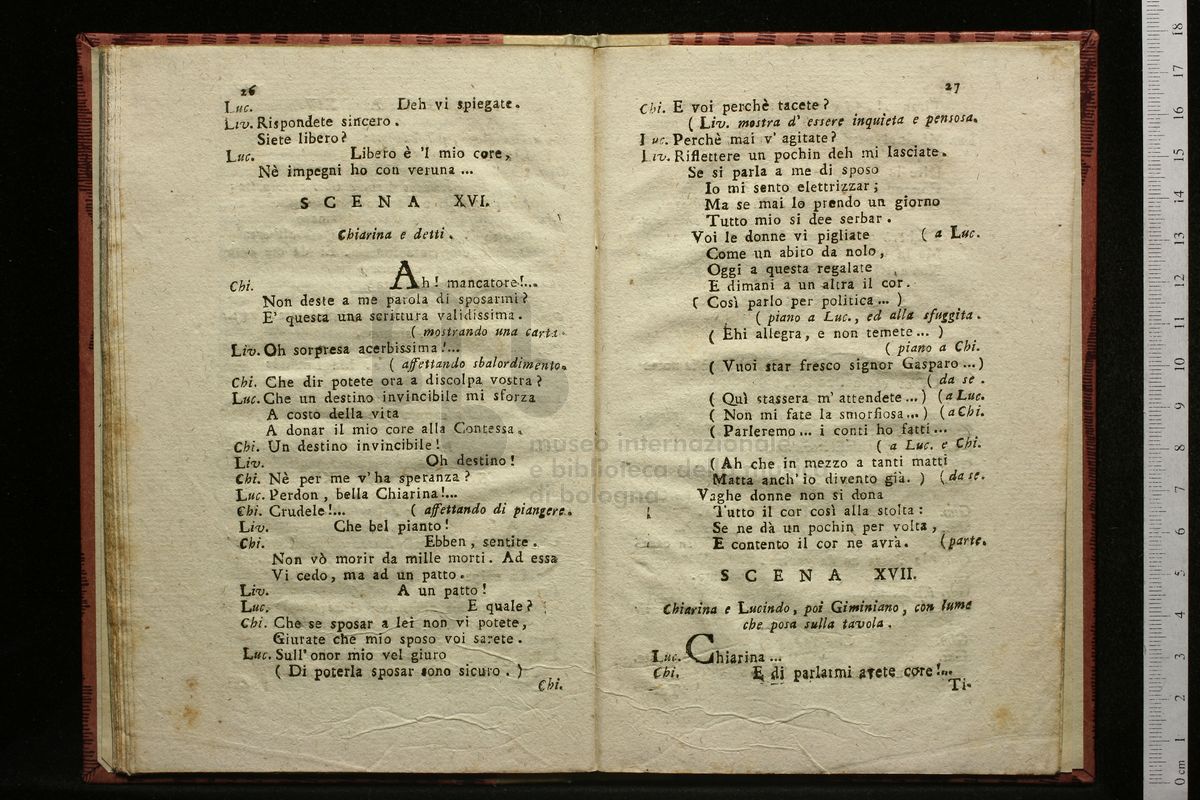 26
Luc. Deh vi spiegate.
Liv. Rispondete sincero.
Siete libero?
Luc. Libero è 'l mio core,
Nè impegni ho con veruna ...
SCENA XVI.
Chiarina e detti.
Chi. Ah! mancatore!...
Non deste a me parola di sposarmi?
E' questa una scrittura validissima.
( mostrando una carta.
Liv. Oh sorpresa acerbissima!...
( affettando sbalordimento.
Chi. Che dir potete ora a discolpa vostra?
Luc. Che un destino invincibile mi sforza
A costo della vita
A donar il mio core alla Contessa.
Chi. Un destino invincibile!
Liv. Oh destino!
Chi. Nè per me v'ha speranza?
Luc. Perdon, bella Chiarina!...
Chi. Crudele!... ( affettando di piangere.
Liv. Che bel pianto!
Chi. Ebben, sentite.
Non vò morir da mille morti. Ad essa
Vi cedo, ma ad un patto.
Liv. A un patto!
Luc. E quale?
Chi. Che se sposar a lei non vi potete,
Giurate che mio sposo voi sarete.
Luc. Sull'onor mio vel giuro
( Di poterla sposar sono sicuro. )
Chi.
27
Chi. E voi perchè tacete?
( Liv. mostra d'essere inquieta e pensosa.
Luc. Perchè mai v'agitate?
Liv. Riflettere un pochin deh mi lasciate.
Se si parla a me di sposo
Io mi sento elettrizzar;
Ma se mai lo prendo un giorno
Tutto mio si dee serbar.
Voi le donne vi pigliate ( a Luc.
Come un abito da nolo,
Oggi a questa regalate
E dimani a un altra il cor.
( Così parlo per politica ... )
( piano a Luc., ed alla sfuggita.
( Ehi allegra, e non temete ... )
( piano a Chi.
( Vuoi star fresco signor Gasparo ...)
( da se.
( Quì stassera m'attendete ...) ( a Luc.
( Non mi fate la smorfiosa ...) ( a Chi.
( Parleremo ... i conti ho fatti ...
( a Luc. e Chi.
( Ah che in mezzo a tanti matti
Matta anch'io divento già. ) ( da se.
Vaghe donne non si dona
Tutto il cor così alla stolta:
Se ne dà un pochin per volta,
E contento il cor ne avrà. ( parte.
SCENA XVII.
Chiarina e Lucindo, poi Giminiano, con lume
che posa sulla tavola.
Luc. Chiarina ...
Chi. E di parlarmi avete core!...
Ti-
museo internazionale
e biblioteca della musica
di bologna
0 cm 1 2 3 4 5 6 7 8 9 10 11 12 13 14 15 16 17 18